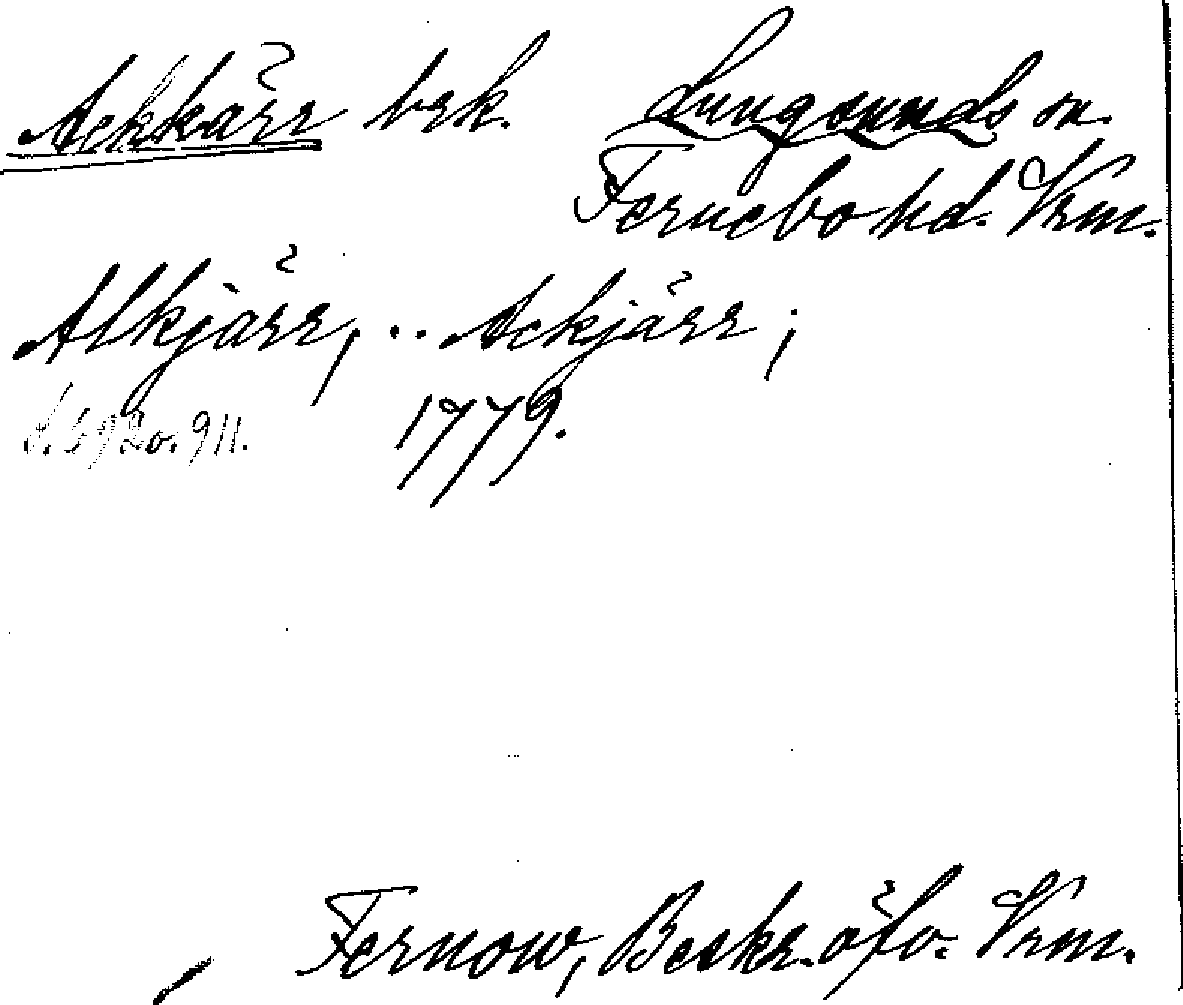 Ackkärr brk. Lungsunds sn.
Fernebo hd. Vrm.
Alkjärr, .. Ackjärr;
s. 592 o. 911. 1779.
Fernow, Beskr. öfv. Vrm.